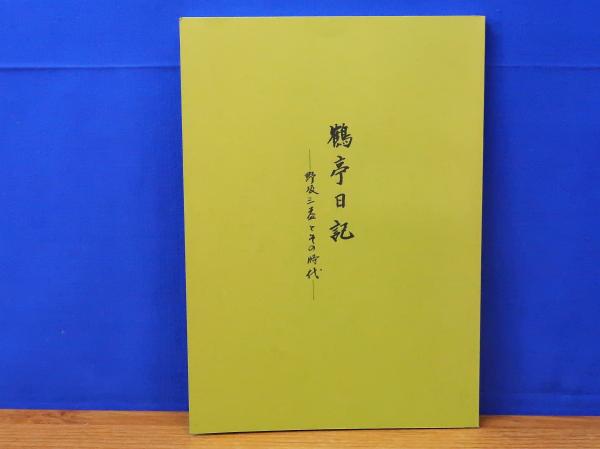 鶴亭日記
―野坂三益とその時代―